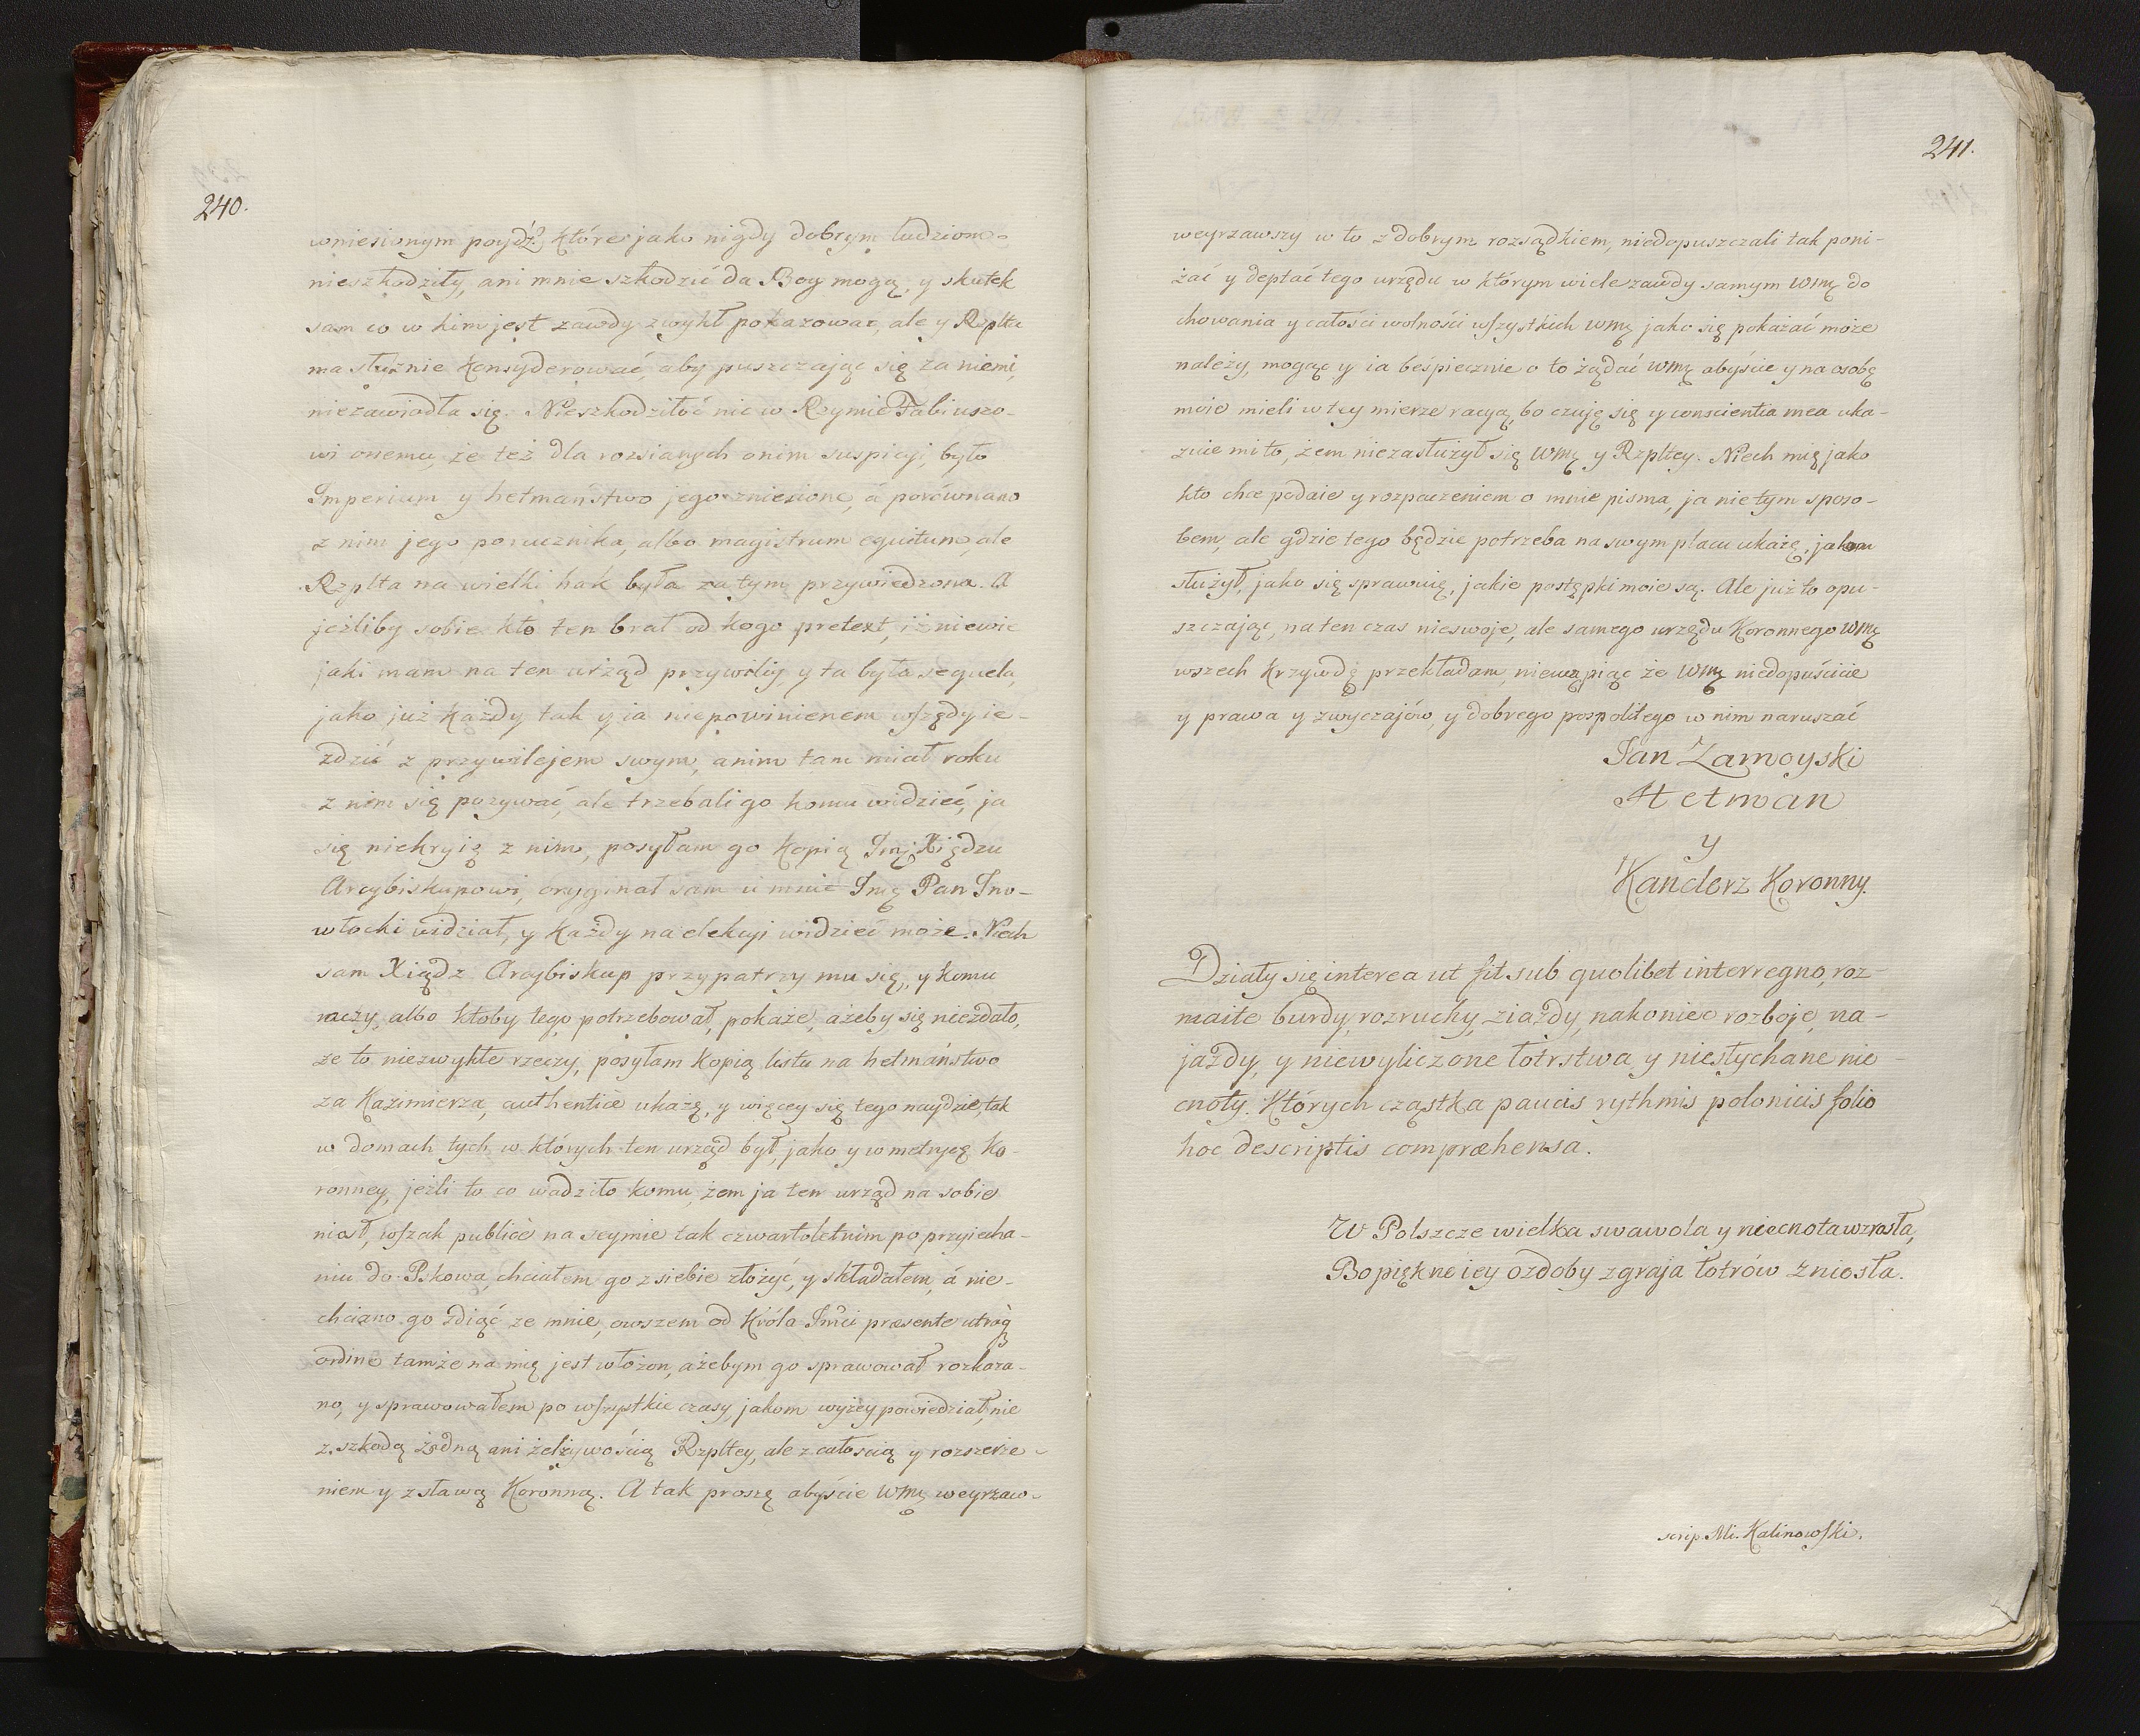 240.
wniesionym poydź? które jako nigdy dobrym ludziom
nieszkodziły, ani mnie szkodzić da Bog mogą, y skutek
sam co w kim jest zawdy zwykł pokazować, ale y Rzplta
ma słusznie konsyderować, aby puszczając się za niemi,
niezawiodła się. Nieszkodziłoć nic w Rzymie Fabiuszo-
wi onemu, że też dla rozsianych o nim suspicyi, było
Imperium y hetmaństwo jego zniesione, á porównano
z nim jego porucznika, albo magistrum equitum, ale
Rzplta na wielki hak była za tym przywiedzona. A
jeżliby sobie kto ten brał od kogo pretext, iż niewie
jaki mam na ten urząd przywiliy, y ta była sequela,
jako już każdy tak y ia niepowinienem wszędy ie-
zdzić z przywilejem swym, anim tam miał roku
z nim się pozywać, ale trzebali go komu widzieć, ja
się niekryię z nim, posyłam go kopią Jmę. Xiędzu
Arcybiskupowi, oryginał sam u mnie Jmę Pan Ino-
włocki widział, y każdy na elekcyi widzieć może. Niech
sam Xiądz Arcybiskup przypatrzy mu się, y komu
raczy, albo ktoby tego potrzebował, pokaże, ażeby się niezdało,
że to niezwykłe rzeczy, posyłam kopią listu na hetmaństwo
za Kazimierza, authenticè ukażę, y więcey się tego naydzie, tak
w domach tych w których ten urząd był, jako y w metryce Ko-
ronney, jeżli to co wadziło komu, żem ja ten urząd na sobie
niosł, wszak publicè na seymie tak czwartoletnim po przyiecha-
niu do Pskowa, chciałem go z siebie złożyć, y składałem, á nie-
chciano go zdiąć ze mnie, owszem od Króla Jmci præsente utroq
ordine tamże na mię jest włożon, ażebym go sprawował rozkaza-
no, y sprawowałem po wszystkie czasy, jakom wyżey powiedział, nie
z szkodą żadną ani żelżywością Rzpltey, ale z całoscią y rozszerze-
niem y z sławą Koronną. A tak proszę abyście Wmę weyrzaw-
241.
weyrzawszy w to z dobrym rozsądkiem, niedopuszczali tak poni-
żać y deptać tego urzędu w którym wiele zawdy samym Wmę do
chowania y całości wolności wszystkich Wmę jako się pokazać może
należy, mogąc y ia beśpiecznie o to żądać Wmę abyście y na osobę
moie mieli w tey mierze racyą, bo czuję się y conscientia mea uka-
zuie mi to, żem niezasłużył się Wmę y Rzpltey. Niech mię jako
kto chce podaie y rozpaczeniem o mnie pisma, ja nie tym sposo-
bem, ale gdzie tego będzie potrzeba na swym placu ukażę, jakom
służył, jako się sprawuię, jakie postępki moie są. Ale już to opu-
szczając, na ten czas nieswoje, ale samego urzędu Koronnego Wmę
wszech krzywdę przekładam, niewątpiąc że Wmę niedopuście
y prawa y zwyczajów, y dobrego pospolitego w nim naruszać
Jan Zamoyski
Hetman
y
Kanclerz Koronny.
Działy się interea ut fit sub quolibet interregno, roz-
maite burdy, rozruchy, ziazdy, nakoniec rozboje, na-
jazdy, y niewyliczone łotrstwa, y niesłychane nie-
cnoty. Których cząstka paucis rythmis polonicis folio
hoc descriptis compræhensa.
W Polszcze wielka swawola y niecnota wzrosła,
Bo piękne iey ozdoby zgraja łotrów zniosła.
scrip. Mi. Kalinowski.